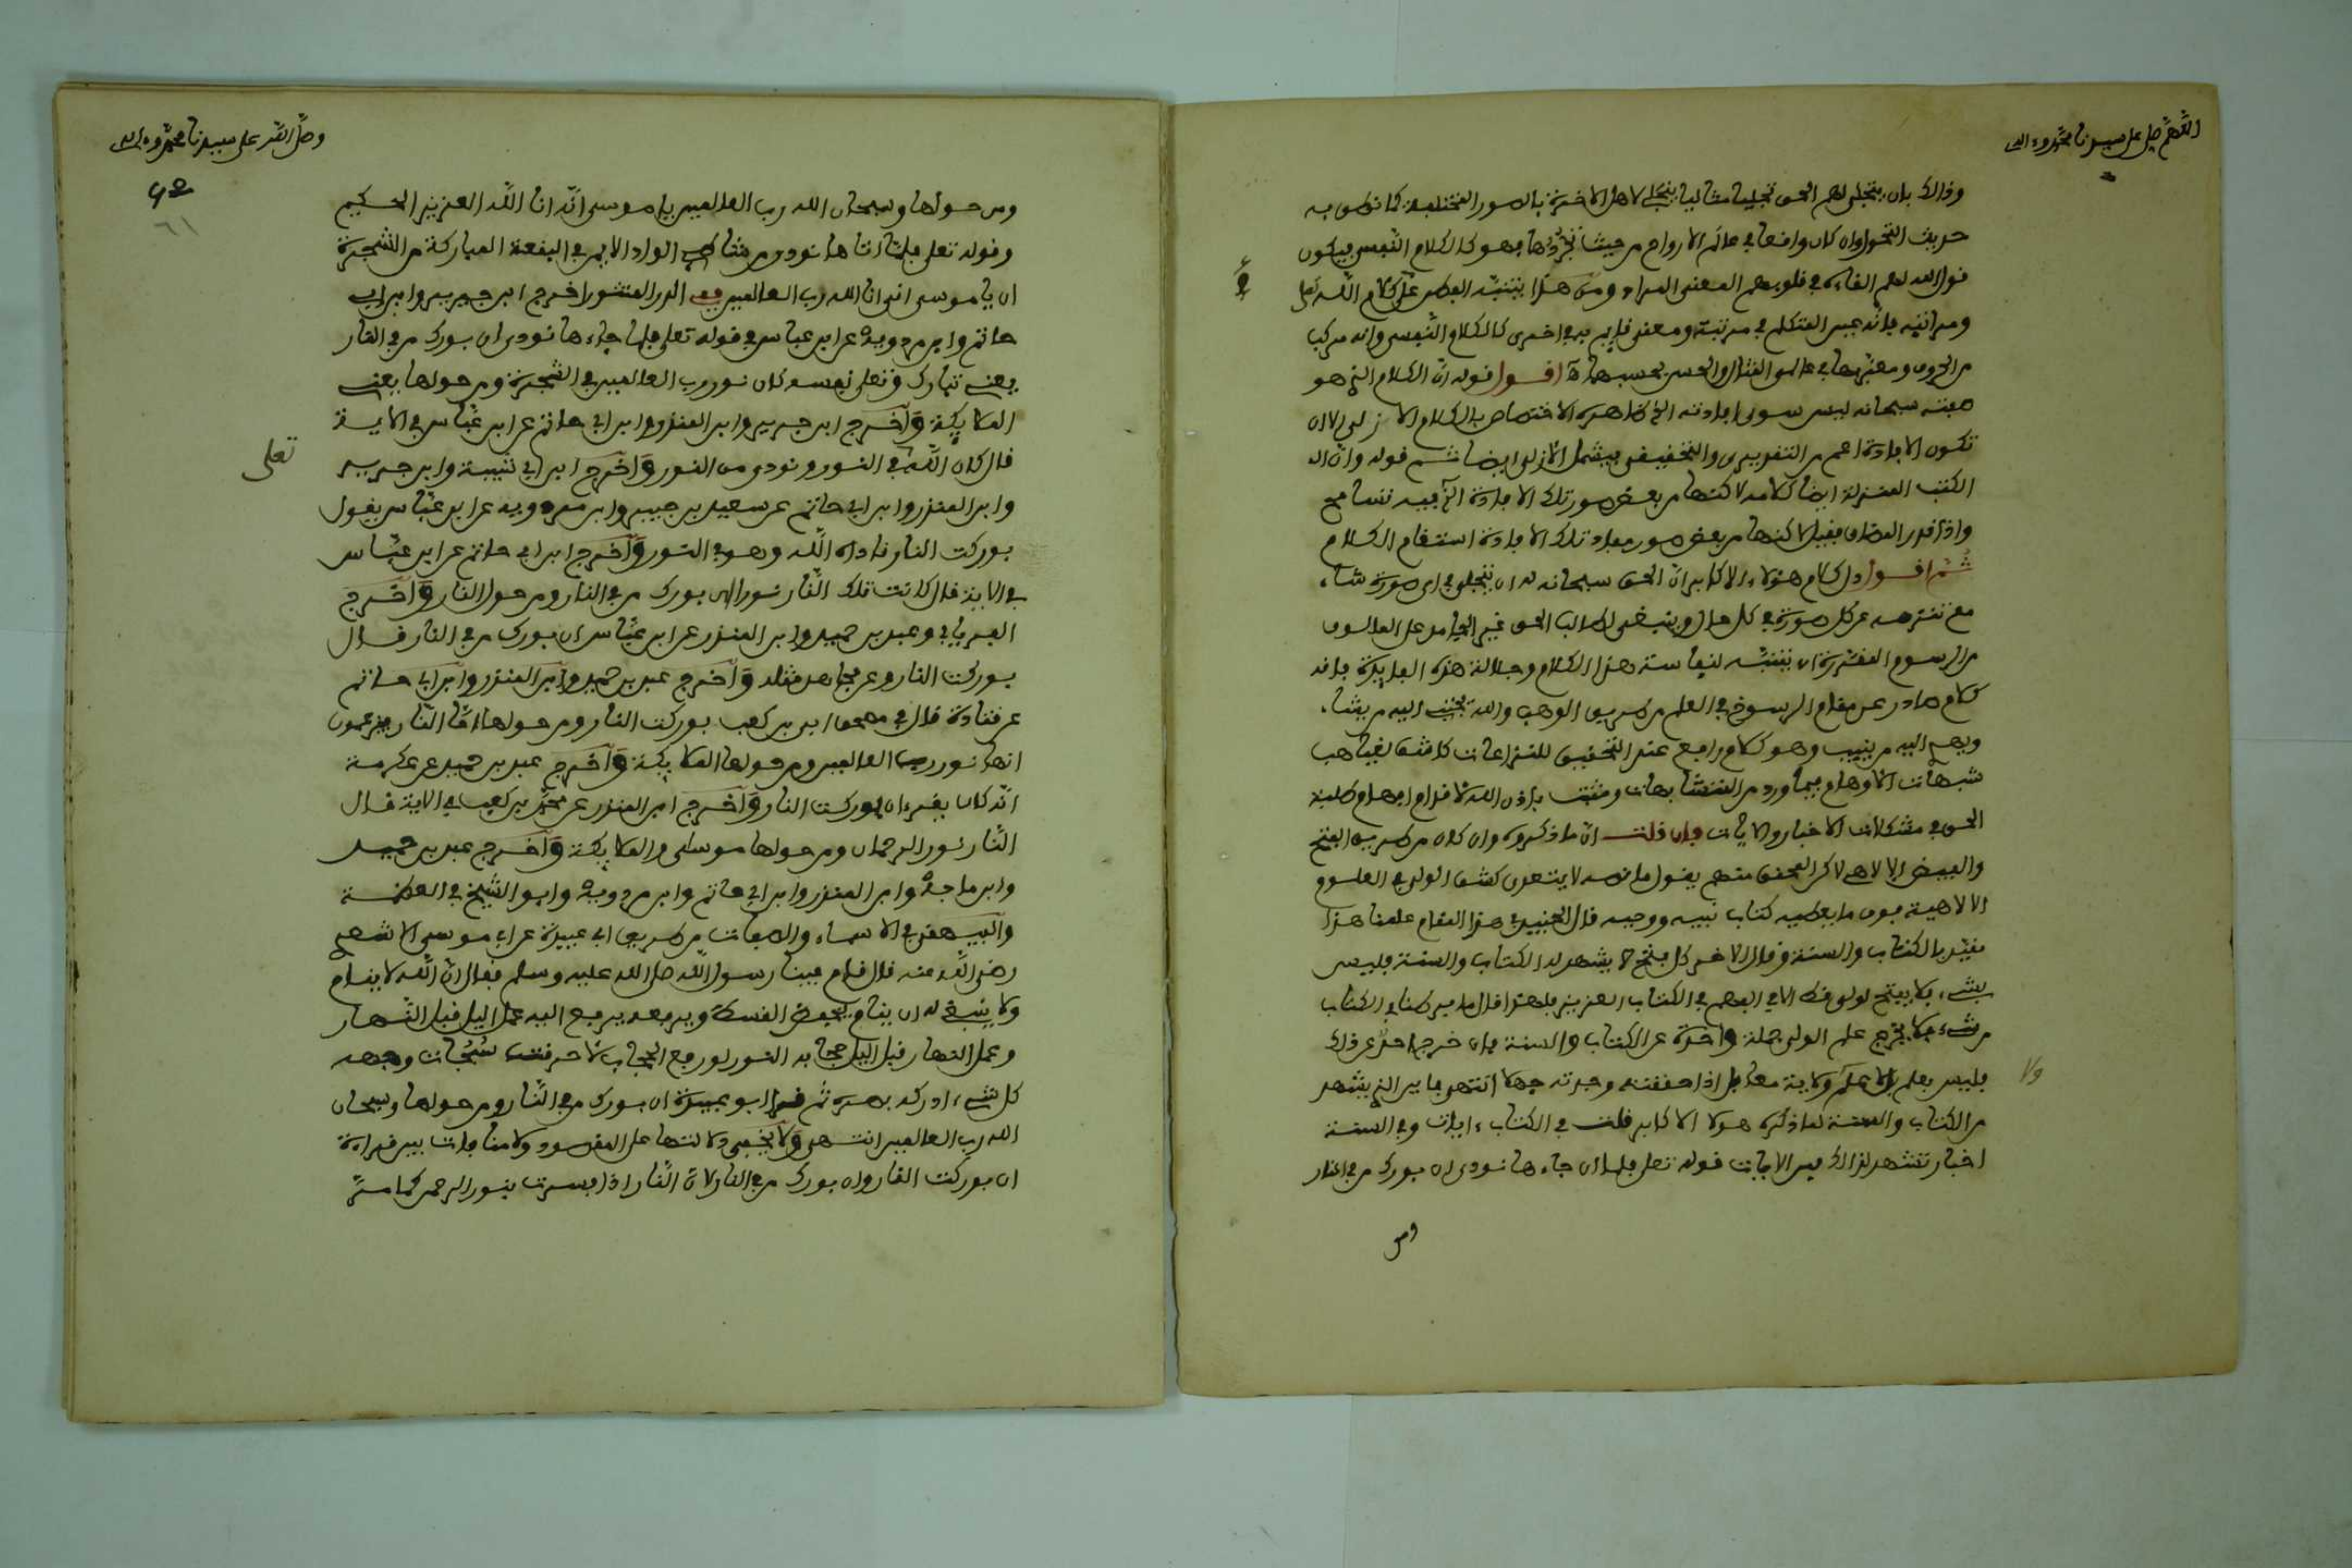 اللهم صل على سيدنا محمد وءاله
وذالك بان يتجلى لهم الحق تجليا مثاليا يتجلى لاهل الاخرة بالصور المختلفة كما نطق به
حديث التحول وان كان واقعا في عالم الارواح من حيث تجردها فهو كالكلام النفسي فيكون
قول الله لهم القاءه في قلوبهم المعنى المراد ومن هذا يتنبه الفطن على كلام الله تعلى
ومراتبه فانه عين المتكلم في مرتبة ومعنى قايم به في اخرى كالكلام النفسي وانه مركب
من الحروف ومعبر بها في عالمي المثال والحس بحسبهما اقول قوله ان الكلام الذي هو
صفته سبحانه ليس سوى افادته الخ ظاهره الاختصاص بالكلام الازلي الا ان
تكون الافادة اعم من التقديري والتحقيقي فيشمل الازلي ايضا ثم قوله وان
الكتب المنزلة ايضا كلامه لاكنها من بعض صور تلك الافادة الخ فيه تسامح
واذا قدر المضاف فقيل لاكنها من بعض صور مفاد تلك الافادة استقام الكلام
ثم اقول دل كلام هؤلاء الاكابر ان الحق سبحانه له ان يتجلى في اي صورة شاء
مع تنزهه عن كل صورة في كل حال وينبغي لطالب الحق غير الجامد على المالوف
من الرسوم المقررة ان يتنبه لنفاسة هذا الكلام وجلالة هذه الفايدة فانه
كلام صادر عن مقام الرسوخ في العلم من طريق الوهب والله يجتبي اليه من يشاء
ويهدي اليه من ينيب وهو كلام رافع عند التحقيق للنزاعات كاشف لغياهب
شبهات الاوهام فيما ورد من المتشابهات ومثبت باذن الله لاقدام افهام طلبة
الحق في مشكلات الاخبار والايات فان قلت ان ما ذكروه وان كان من طريق الفتح
والفيض الالاهي لاكن المحقق منهم يقول ما نصه لا يتعدى كشف الولي في العلوم
الالاهية فوق ما يعطيه كتاب نبيه ووحيه قال الجنيد في هذا المقام علمنا هذا
مقيد بالكتاب والسنة وقال الاخر كل فتح لا يشهد له الكتاب والسنة فليس
بشيء فلا يفتح لولي قط الا في الفهم في الكتاب العزيز فلهذا قال ما فرطنا في الكتاب
من شيء فلا يخرج علم الولي جملة واحدة عن الكتاب والسنة فان خرج احد عن ذلك
فليس بعلم ولا علم ولاية معا بل اذا حققته وجدته جهلا انتهى فاين الذي يشهد
ولا
من الكتاب والسنة لما ذكره هولا الاكابر قلت في الكتاب ءايات وفي السنة
اخبار تشهد لذالك فمن الايات قوله تعلى فلما جاءها نودي ان بورك من في النار
ومن
وصلى الله على سيدنا محمد وءاله
٦١
ومن حولها وسبحان الله رب العالمين يا موسى انه انا الله العزيز الحكيم
وقوله تعلى فلما اتاها نودي من شاطئ الواد الايمن في البقعة المباركة من الشجرة
ان يا موسى اني انا الله رب العالمين ففي الدر المنثور اخرج ابن جرير وابن ابي
حاتم وابن مردويه عن ابن عباس في قوله تعلى فلما جاءها نودي ان بورك من في النار
يعني تبارك وتعلى نفسه كان نور رب العالمين في الشجرة ومن حولها يعني
الملايكة وأخرج ابن جرير وابن المنذر وابن ابي حاتم عن ابن عباس في الاية
قال كان الله في النور ونودي من النور وأخرج ابن ابي شيبة وابن جرير
تعلى
وابن المنذر وابن ابي حاتم عن سعيد بن جبير وابن مردويه عن ابن عباس يقول
بوركت النار ناداه الله وهو في النور وأخرج ابن ابي حاتم عن ابن عباس
في الاية قال كانت تلك النار نورا ان بورك من في النار ومن حول النار وأخرج
الفريابي وعبد بن حميد وابن المنذر عن ابن عباس ان بورك من في النار قال
بوركت النار وعن مجاهد مثله وأخرج عبد بن حميد وابن المنذر وابن ابي حاتم
عن قتادة قال في مصحف ابي بن كعب بوركت النار ومن حولها اما النار فيزعمون
انها نور رب العالمين ومن حولها الملايكة وأخرج عبد بن حميد عن عكرمة
انه كان يقرء ان بوركت النار وأخرج ابن المنذر عن محمد بن كعب في الاية قال
النار نور الرحمان ومن حولها موسى والملايكة وأخرج عبد بن حميد
وابن ماجه وابن المنذر وابن ابي حاتم وابن مردويه وابو الشيخ في العظمة
والبيهقي في الاسماء والصفات من طريق ابي عبيدة عن ابي موسى الاشعري
رضي الله عنه قال قام فينا رسول الله صلى الله عليه وسلم فقال ان الله لا ينام
ولا ينبغي له ان ينام يخفض القسط ويرفعه يرفع اليه عمل اليل قبل النهار
وعمل النهار قبل اليل حجابه النور لو رفع الحجاب لاحرقت سبحات وجهه
كل شيء ادركه بصره ثم قرا ابو عبيدة ان بورك من في النار ومن حولها وسبحان
الله رب العالمين انتهى ولا يخفى دلالتها على المقصود ولا منافات بين قراءة
ان بوركت النار وان بورك من في النار لان النار اذا فسرت بنور الرحمن كما مر